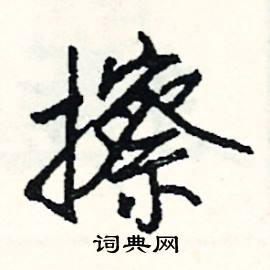 擦
词典网